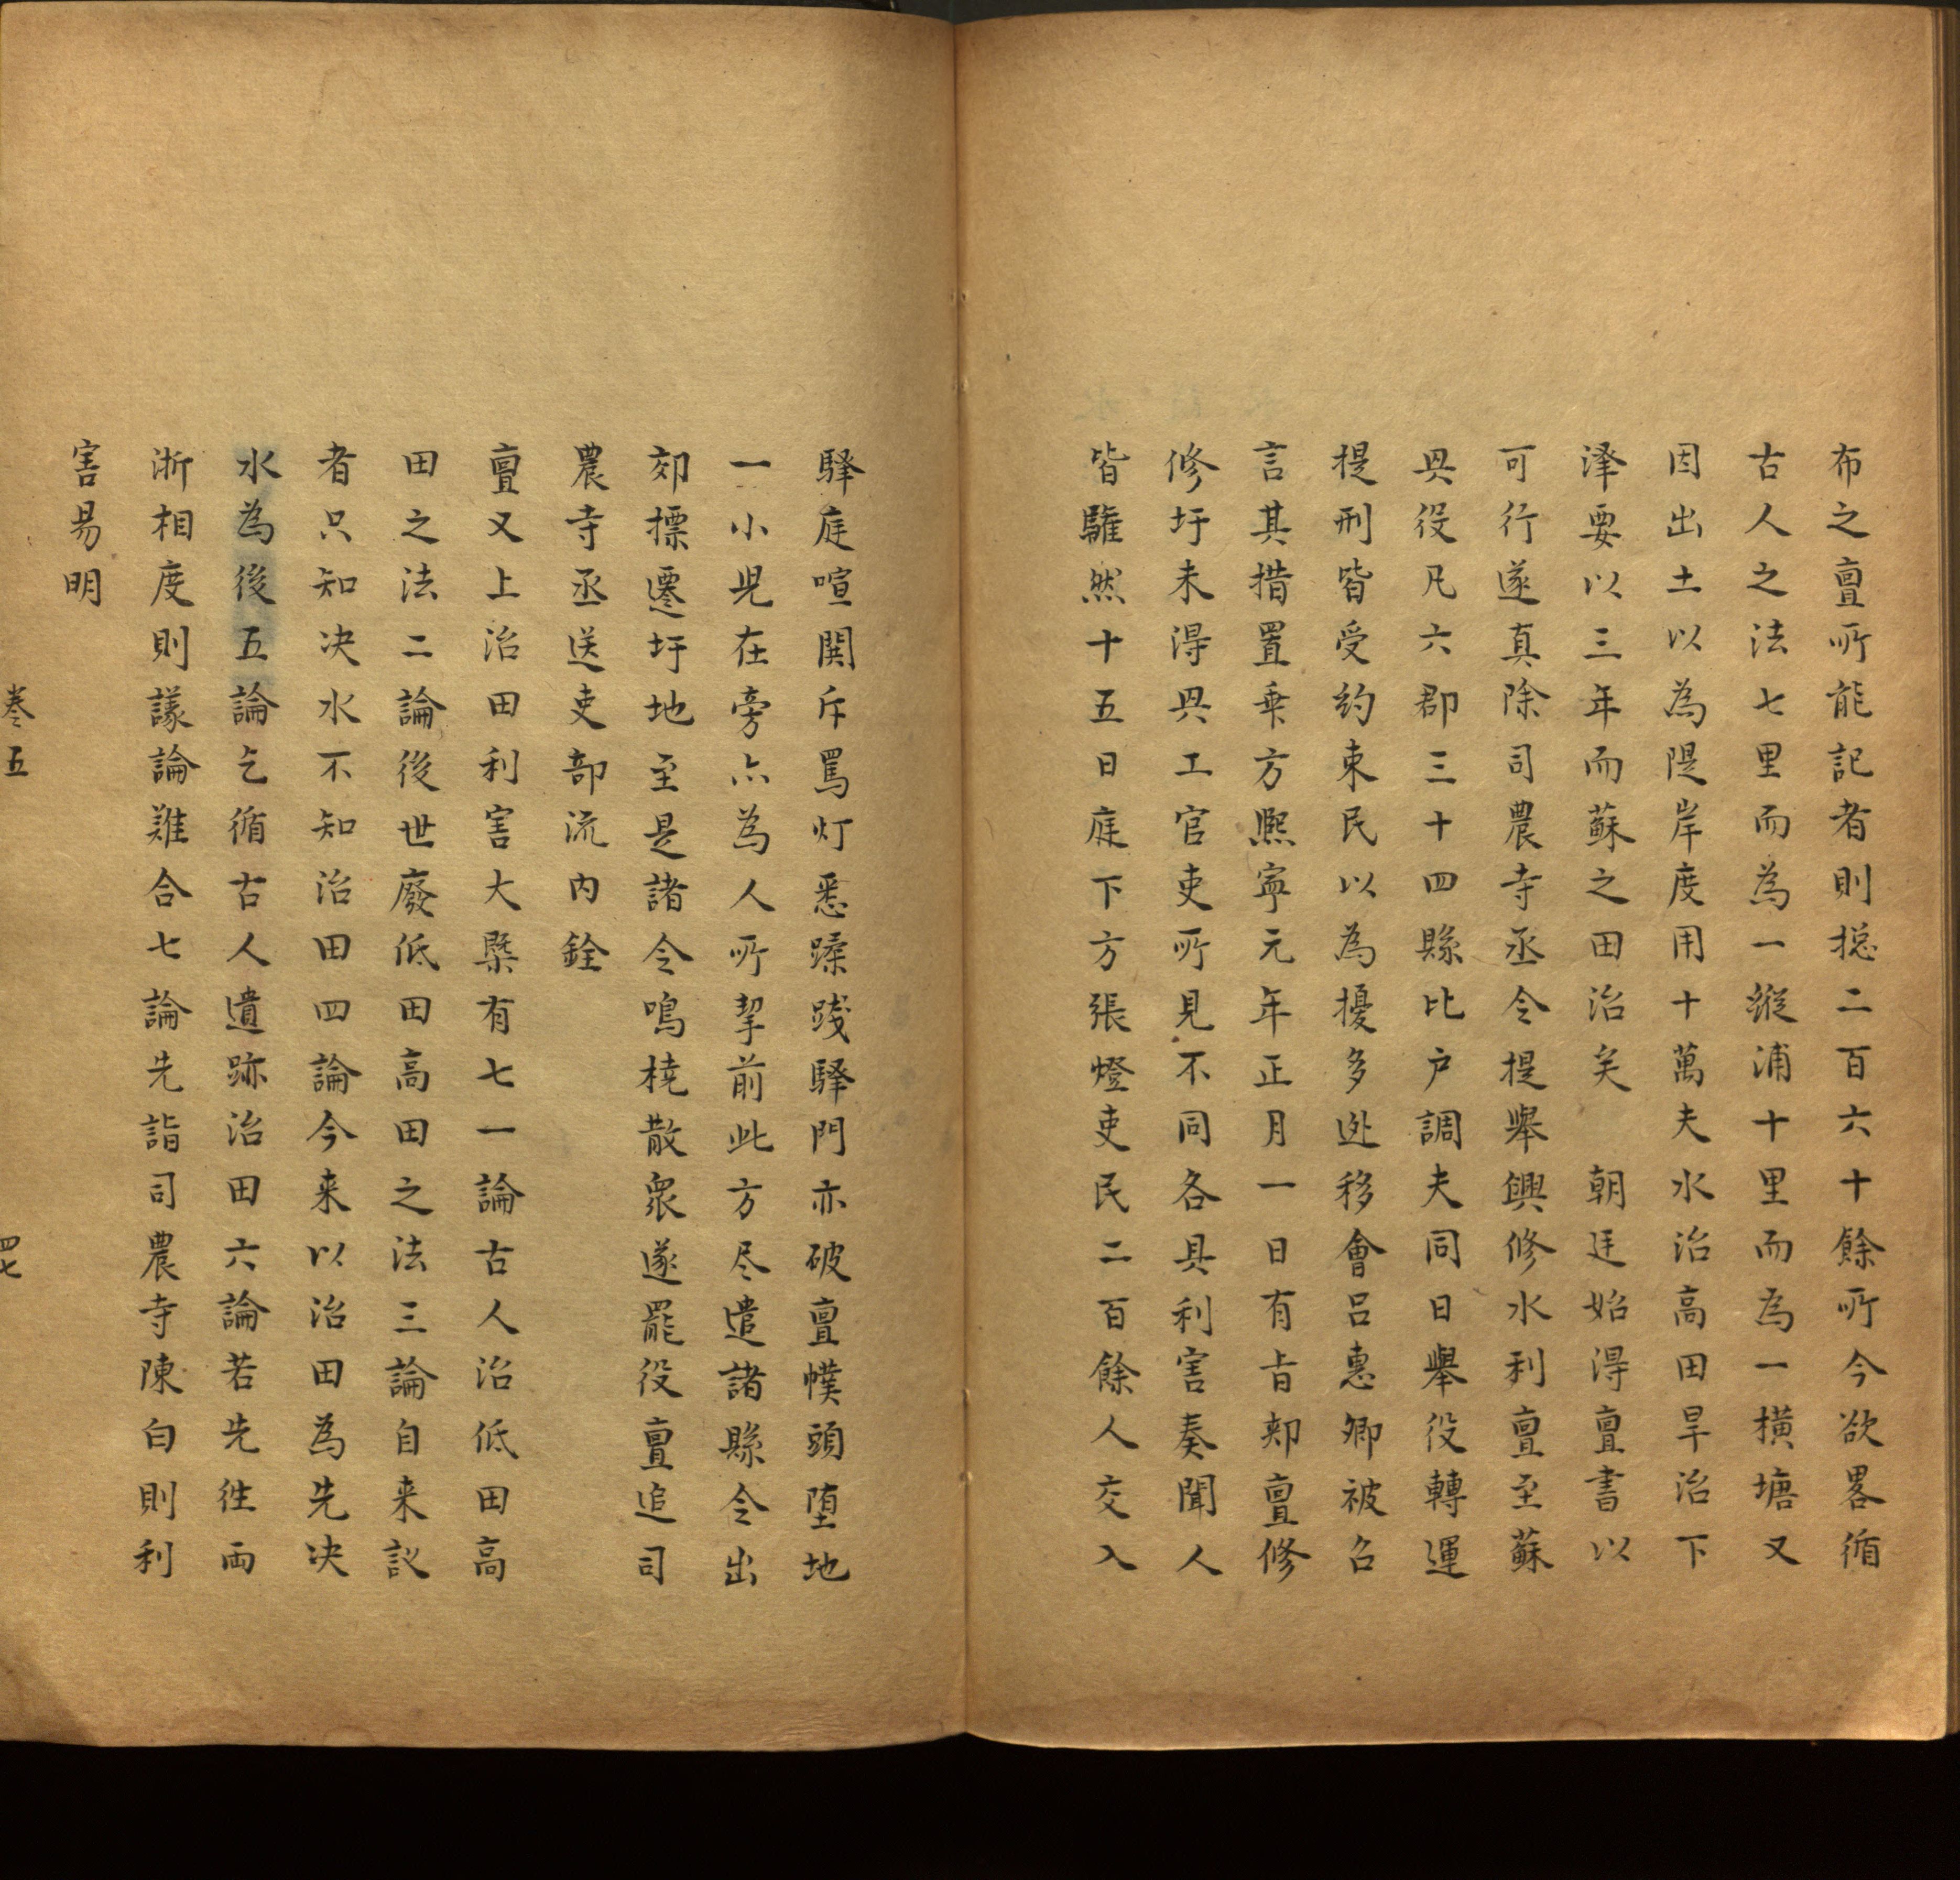 布之亶所能記者則揔二百六十餘所今欲畧循
古人之法七里而為一縱浦十里而為一横塘又
因出土以為隄岸度用十萬夫水治高田旱治下
泽要以三年而蘇之田治矣　朝廷始得亶書以
可行遂真除司農寺丞令提舉興修水利亶至蘇
興役凡六郡三十四縣比户調夫同日舉役轉運
提刑皆受約束民以為擾多迯移會吕惠卿被召
言其措置乗方熈寧元年正月一日有旨郟亶修
修圩未得興工官吏所見不同各具利害奏聞人
皆驩然十五日庭下方張燈吏民二百餘人交入
驛庭喧鬨斥罵灯悉蹂踐驛門亦破亶幞頭堕地
一小児在旁亦為人所挈前此方尽遣諸縣令出
郊摽遷圩地至是諸令鳴橈散衆遂罷役亶追司
農寺丞送吏部流内銓
亶又上治田利害大槩有七一論古人治低田高
田之法二論後世廢低田高田之法三論自来議
者只知决水不知治田四論今来以治田為先决
水為後五論乞循古人遺跡治田六論若先徃両
浙相度則議論難合七論先詣司農寺陳白則利
害易明
卷五
四七